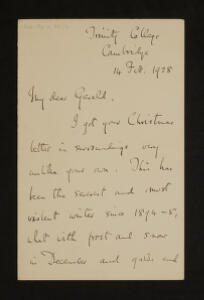 Trinity College
Cambridge
14 Feb. 1928
My dear Gerald,
I got your Christmas
letter in surroundings very
unlike your own. This has
been the severest and most
violent winter since 1894-5,
what with frost and snow
in December and gales and